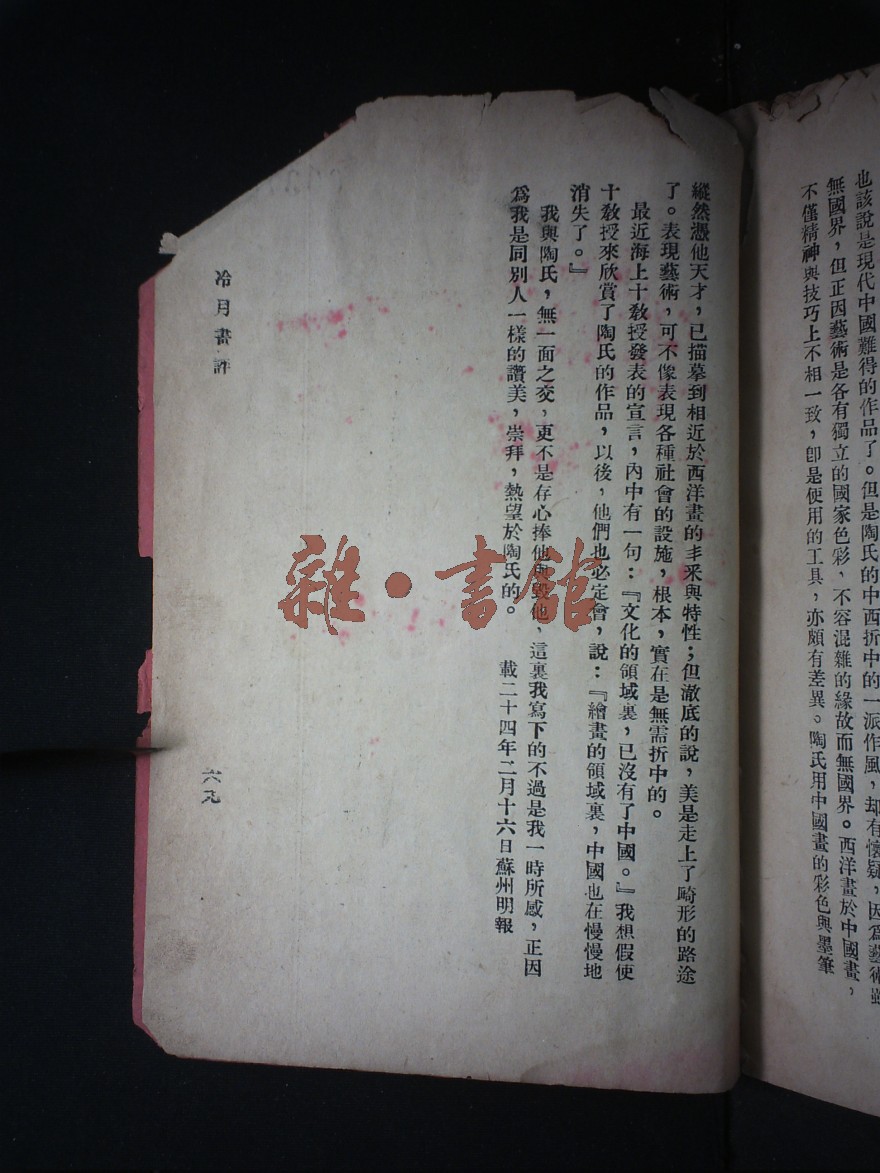 也該說是現代中國難得的作品了。但是陶氏的中西折中的一派作風,却有懷疑,因爲藝術雖
無國界,但正因藝術是各有獨立的國家色彩,不容混雜的緣故而無國界。西洋畫於中國畫,
不僅精神與技巧上不相一致,卽是使用的工具,亦頗有差異。陶氏用中國畫的彩色與墨筆
縱然憑他天才,已描摹到相近於西洋畫的丰采與特性;但澈底的說,美是走上了畸形的路途
了。表現藝術,可不像表現各種社會的設施,根本,實在是無需折中的。
最近海上十教授發表的宣言,內中有一句:『文化的領域裏,已沒有了中國。』我想假使
十教授來欣賞了陶氏的作品,以後,他們也必定會,說:『繪畫的領域裏,中國也在慢慢地
消失了。』
我與陶氏,無一面之交,更不是存心捧他與毀他,這裏我寫下的不過是我一時所感,正因
爲我是同別人一樣的讚美,崇拜,熱望於陶氏的。
載二十四年二月十六日蘇州明報
冷月畫評
六九
雜·書館